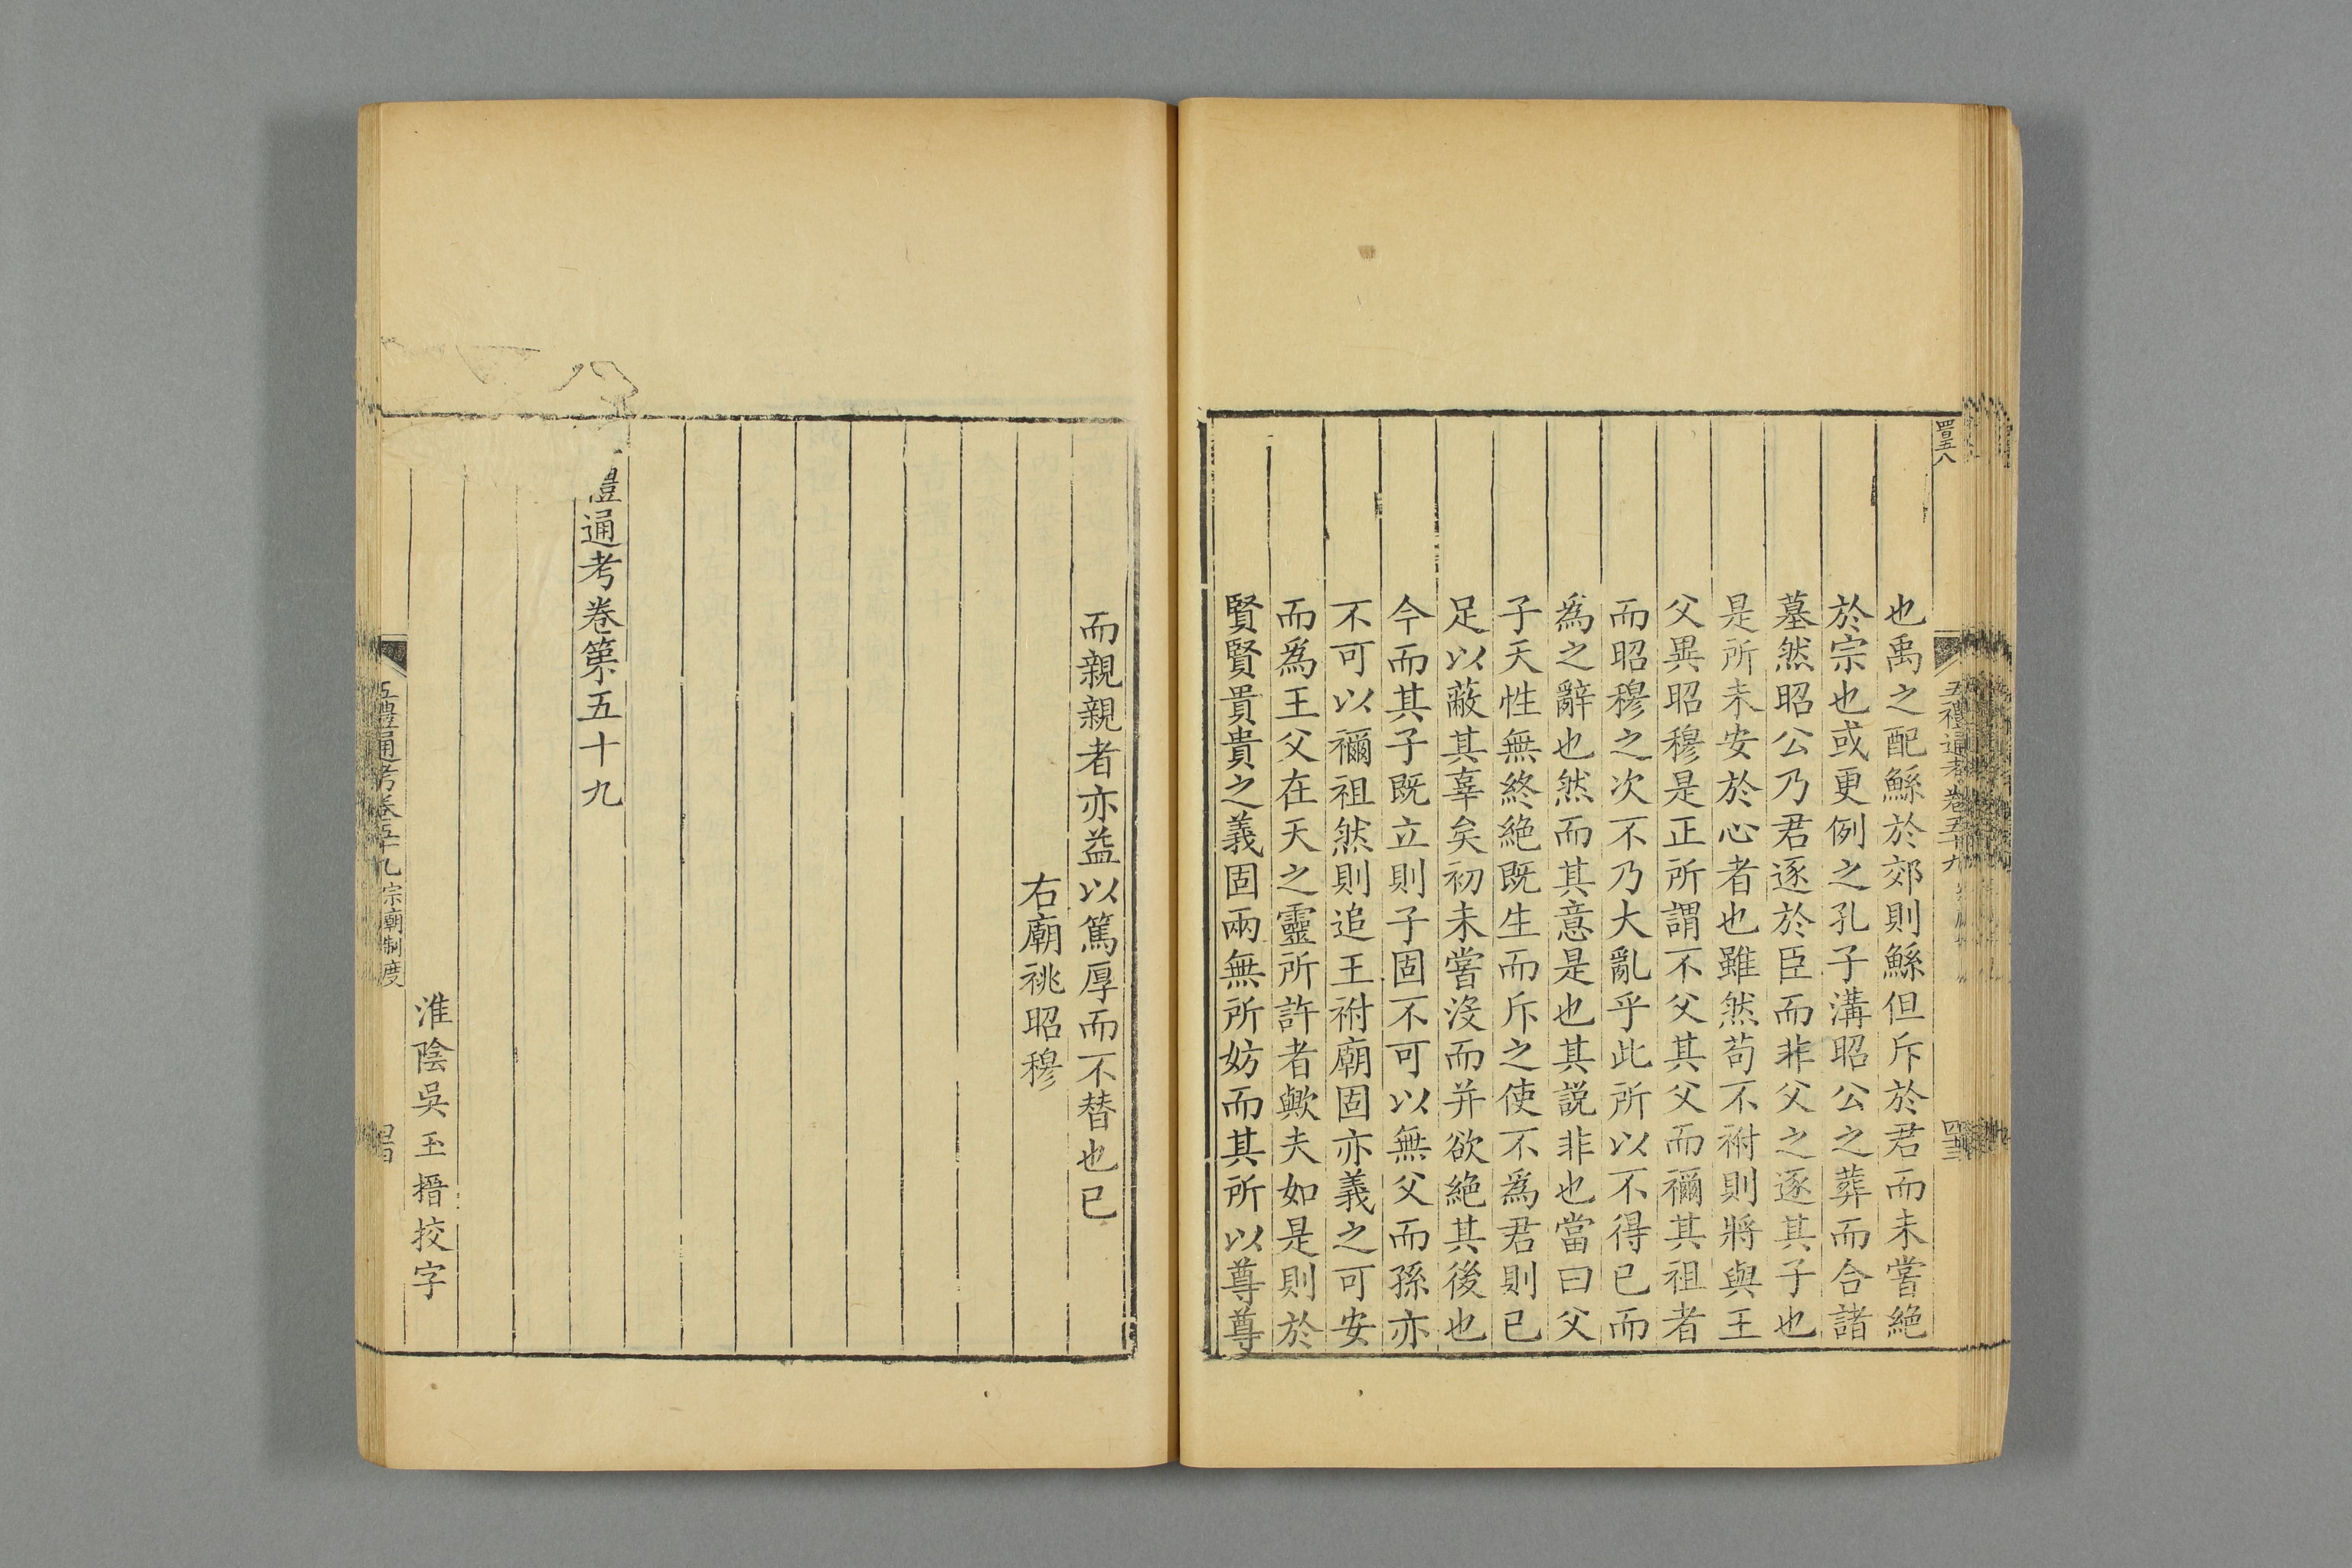 四百五八
五禮通考卷五十九
也禹之配鯀於郊則鯀但斥於君而未嘗絶
於宗也或更例之孔子溝昭公之葬而合諸
墓然昭公乃君逐於臣而非父之逐其子也
是所未安於心者也雖然苟不祔則將與王
父異昭穆是正所謂不父其父而禰其祖者
而昭穆之次不乃大亂乎此所以不得已而
為之辭也然而其意是也其説非也當曰父
子天性無終絶既生而斥之使不為君則已
足以蔽其辜矣初未嘗沒而并欲絶其後也
今而其子既立則子固不可以無父而孫亦
不可以禰祖然則追王祔廟固亦義之可安
而為王父在天之靈所許者歟夫如是則於
賢賢貴貴之義固兩無所妨而其所以尊尊
而親親者亦益以篤厚而不替也已
右廟祧昭穆
禮通考卷第五十九
淮陰吳玉搢挍字
五禮通考卷五十九 宗廟制度